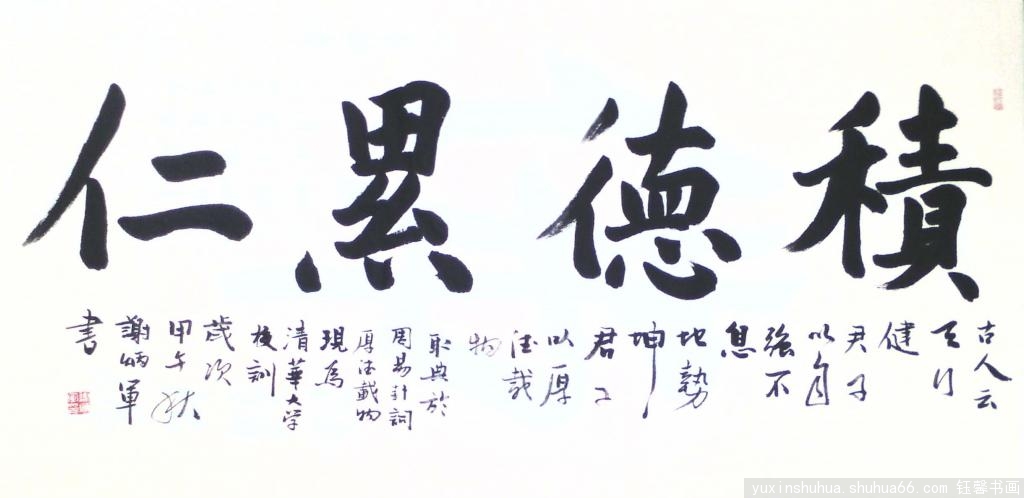 積德累仁
古人云
天行
健
君子
以自
強不
息
地勢
坤
君子
以厚
德載
物
取典於
周易卦詞
厚德載物
現為
清華大学
校訓
歲次
甲午秋
謝炳軍
書
yuxinshuhua.shuhua66.com 钰馨书画